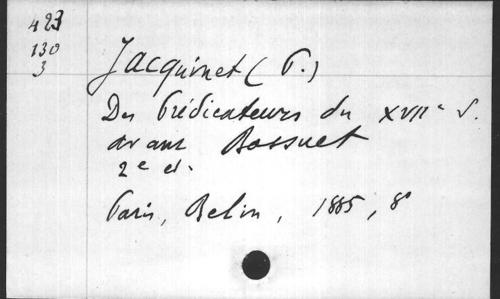 423
130
3
Jacquinet (P.)
Des Prédicateurs du XVIIe S.
avant Bossuet
2e ed.
Paris, Belin, 1885, 8°